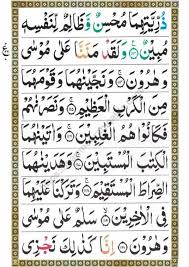 ذُرِّیَّتِهِمَا مُحْسِنٌ وَّ ظَالِمٌ لِّنَفْسِهٖ
مُبِیْنٌ ۝ وَ لَقَدْ مَنَنَّا عَلٰی مُوْسٰی
وَ هٰرُوْنَ ۝ وَ نَجَّیْنٰهُمَا وَ قَوْمَهُمَا
مِنَ الْكَرْبِ الْعَظِیْمِ ۝ وَ نَصَرْنٰهُمْ
فَكَانُوْا هُمُ الْغٰلِبِیْنَ ۝ وَ اٰتَیْنٰهُمَا
الْكِتٰبَ الْمُسْتَبِیْنَ ۝ وَ هَدَیْنٰهُمَا
الصِّرَاطَ الْمُسْتَقِیْمَ ۝ وَ تَرَكْنَا عَلَیْهِمَا
فِی الْاٰخِرِیْنَ ۝ سَلٰمٌ عَلٰی مُوْسٰی
وَ هٰرُوْنَ ۝ اِنَّا كَذٰلِكَ نَجْزِی